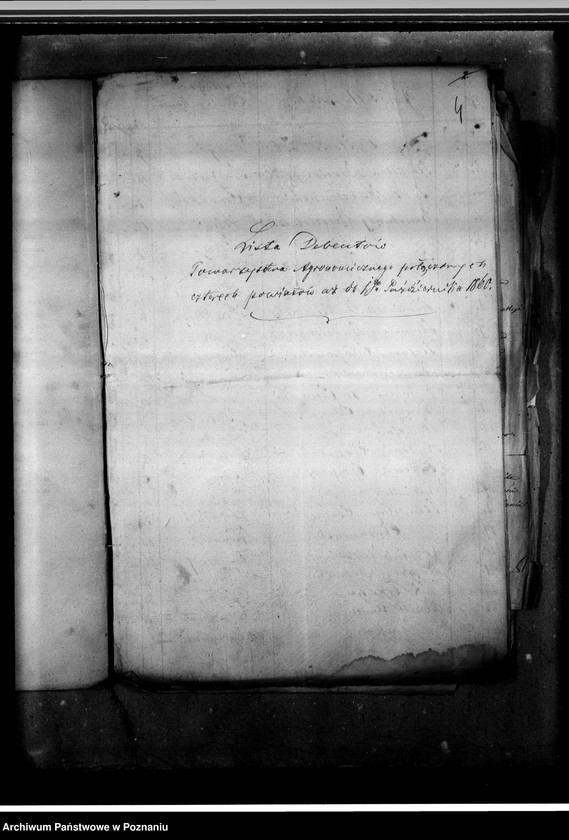 4
Lista Debentów
Towarzystwa Agronomicznego połączonych
czterech powiatów aż do 1go Października 1860.
Archiwum Państwowe w Poznaniu